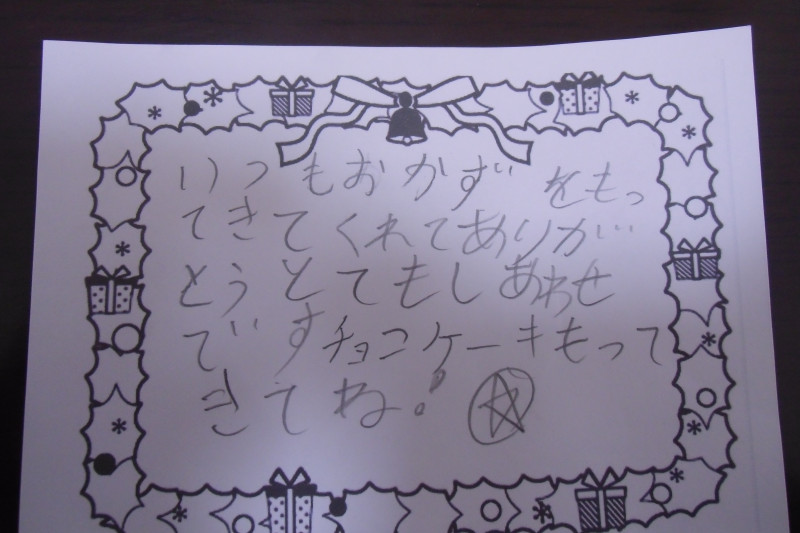 いつもおかずをもっ
てきてくれてありが
とうとてもしあわせ
ですチョコケーキもって
きてね!